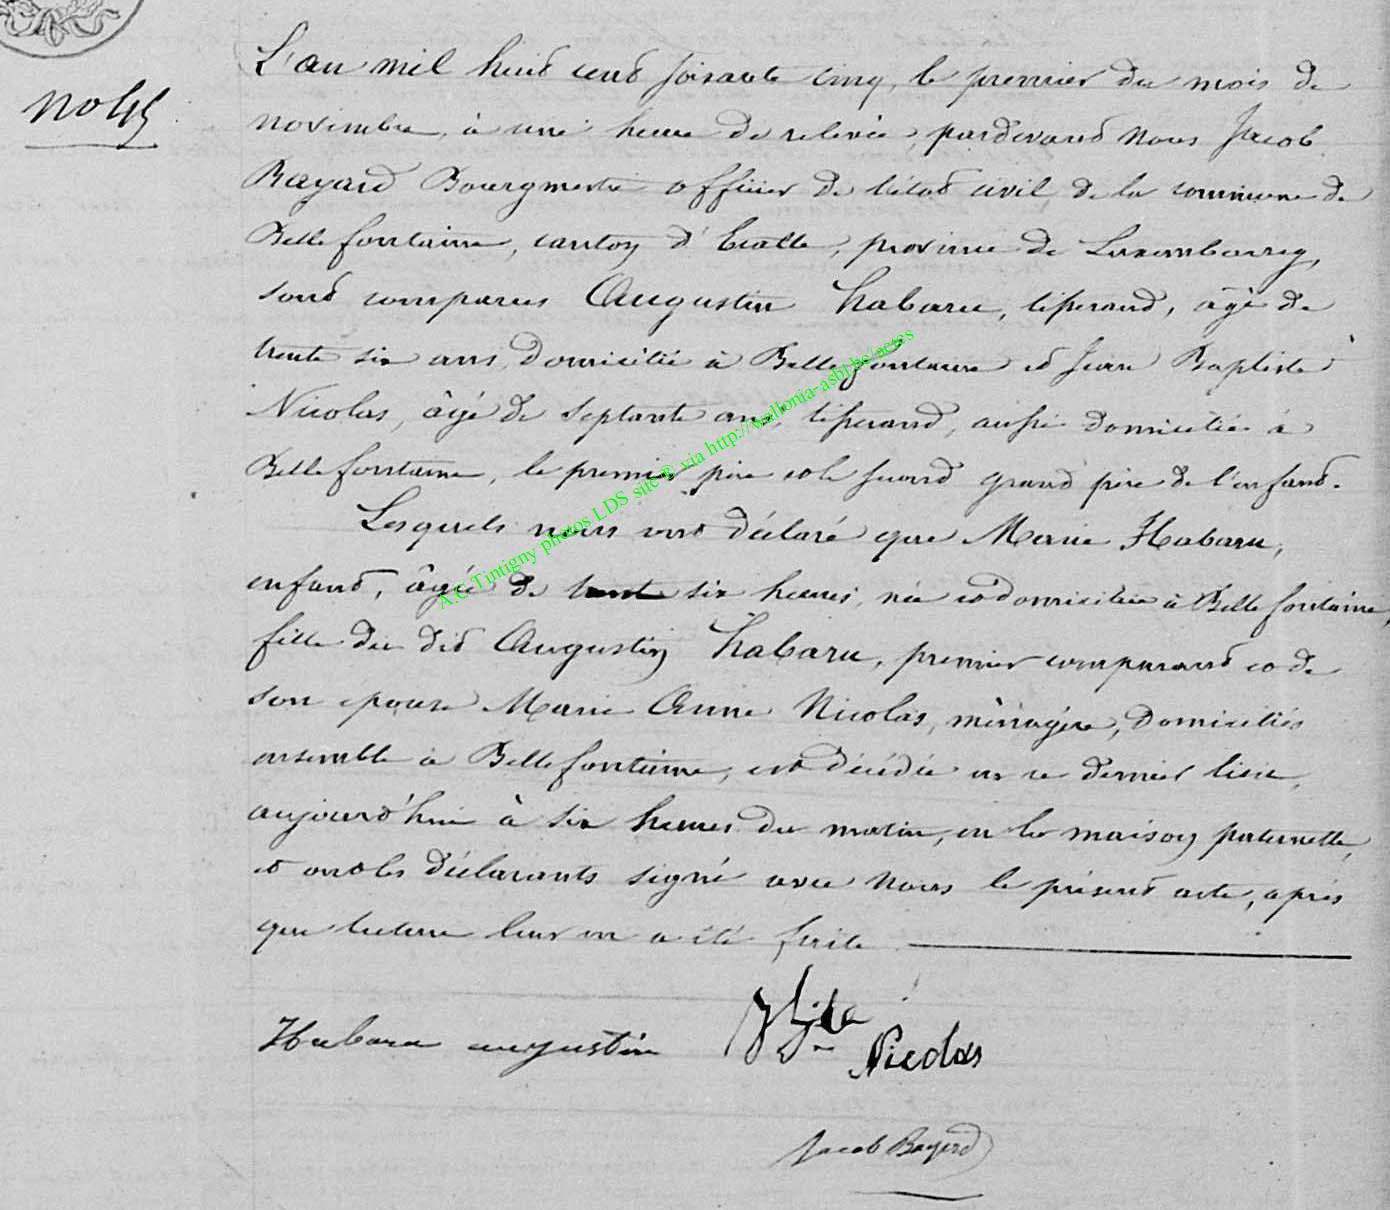 L'an mil huit cent soixante cinq, le premier du mois de
No 45
novembre, à une heure de relevée, pardevant nous Jacob
Bayard Bourgmestre officier de l'état civil de la commune de
Bellefontaine, canton d'Etalle, province de Luxembourg,
sont comparus Augustin Habaru, tisserand, âgé de
trente six ans, domicilié à Bellefontaine et Jean Baptiste
Nicolas, âgé de septante ans, tisserand, aussi domicilié à
Bellefontaine, le premier père et le second grand père de l'enfant.
Lesquels nous ont déclaré que Marie Habaru,
enfant, âgée de six heures, née et domiciliée à Bellefontaine,
fille du dit Augustin Habaru, premier comparant et de
son epouse Marie Anne Nicolas, ménagère, domiciliés
ensemble à Bellefontaine, est décédée en ce dernier lieu,
aujourd'hui à six heures du matin, en la maison paternelle,
et ont les déclarants signé avec nous le présent acte, après
que lecture leur en a été faite
Habaru augustin
Nicolas
Jacob Bayard
A.C Tintigny photos LDS site ® via http://wallonia-asbl.be/actes